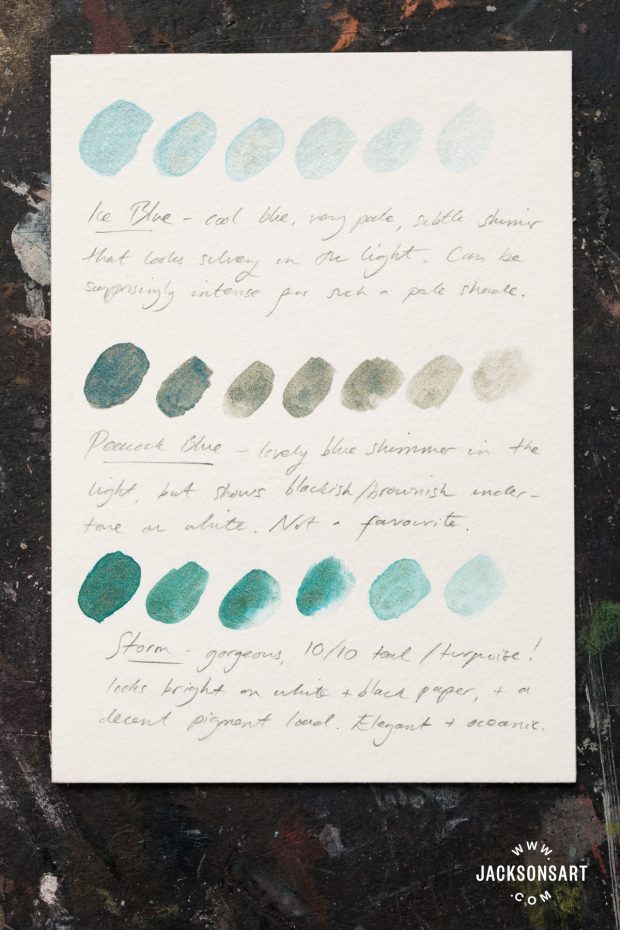 Ice Blue - cool blue, very pale, subtle shimmer
that looks silvery in the light. Can be
surprisingly intense for such a pale shade.
Peacock Blue - lovely blue shimmer in the
light, but shows blackish/brownish under-
tone on white. Not a favourite.
Storm - gorgeous, 10/10 teal/turquoise!
looks bright on white + black paper, + a
decent pigment load. Elegant + oceanic.
WWW.
JACKSONSART
.COM